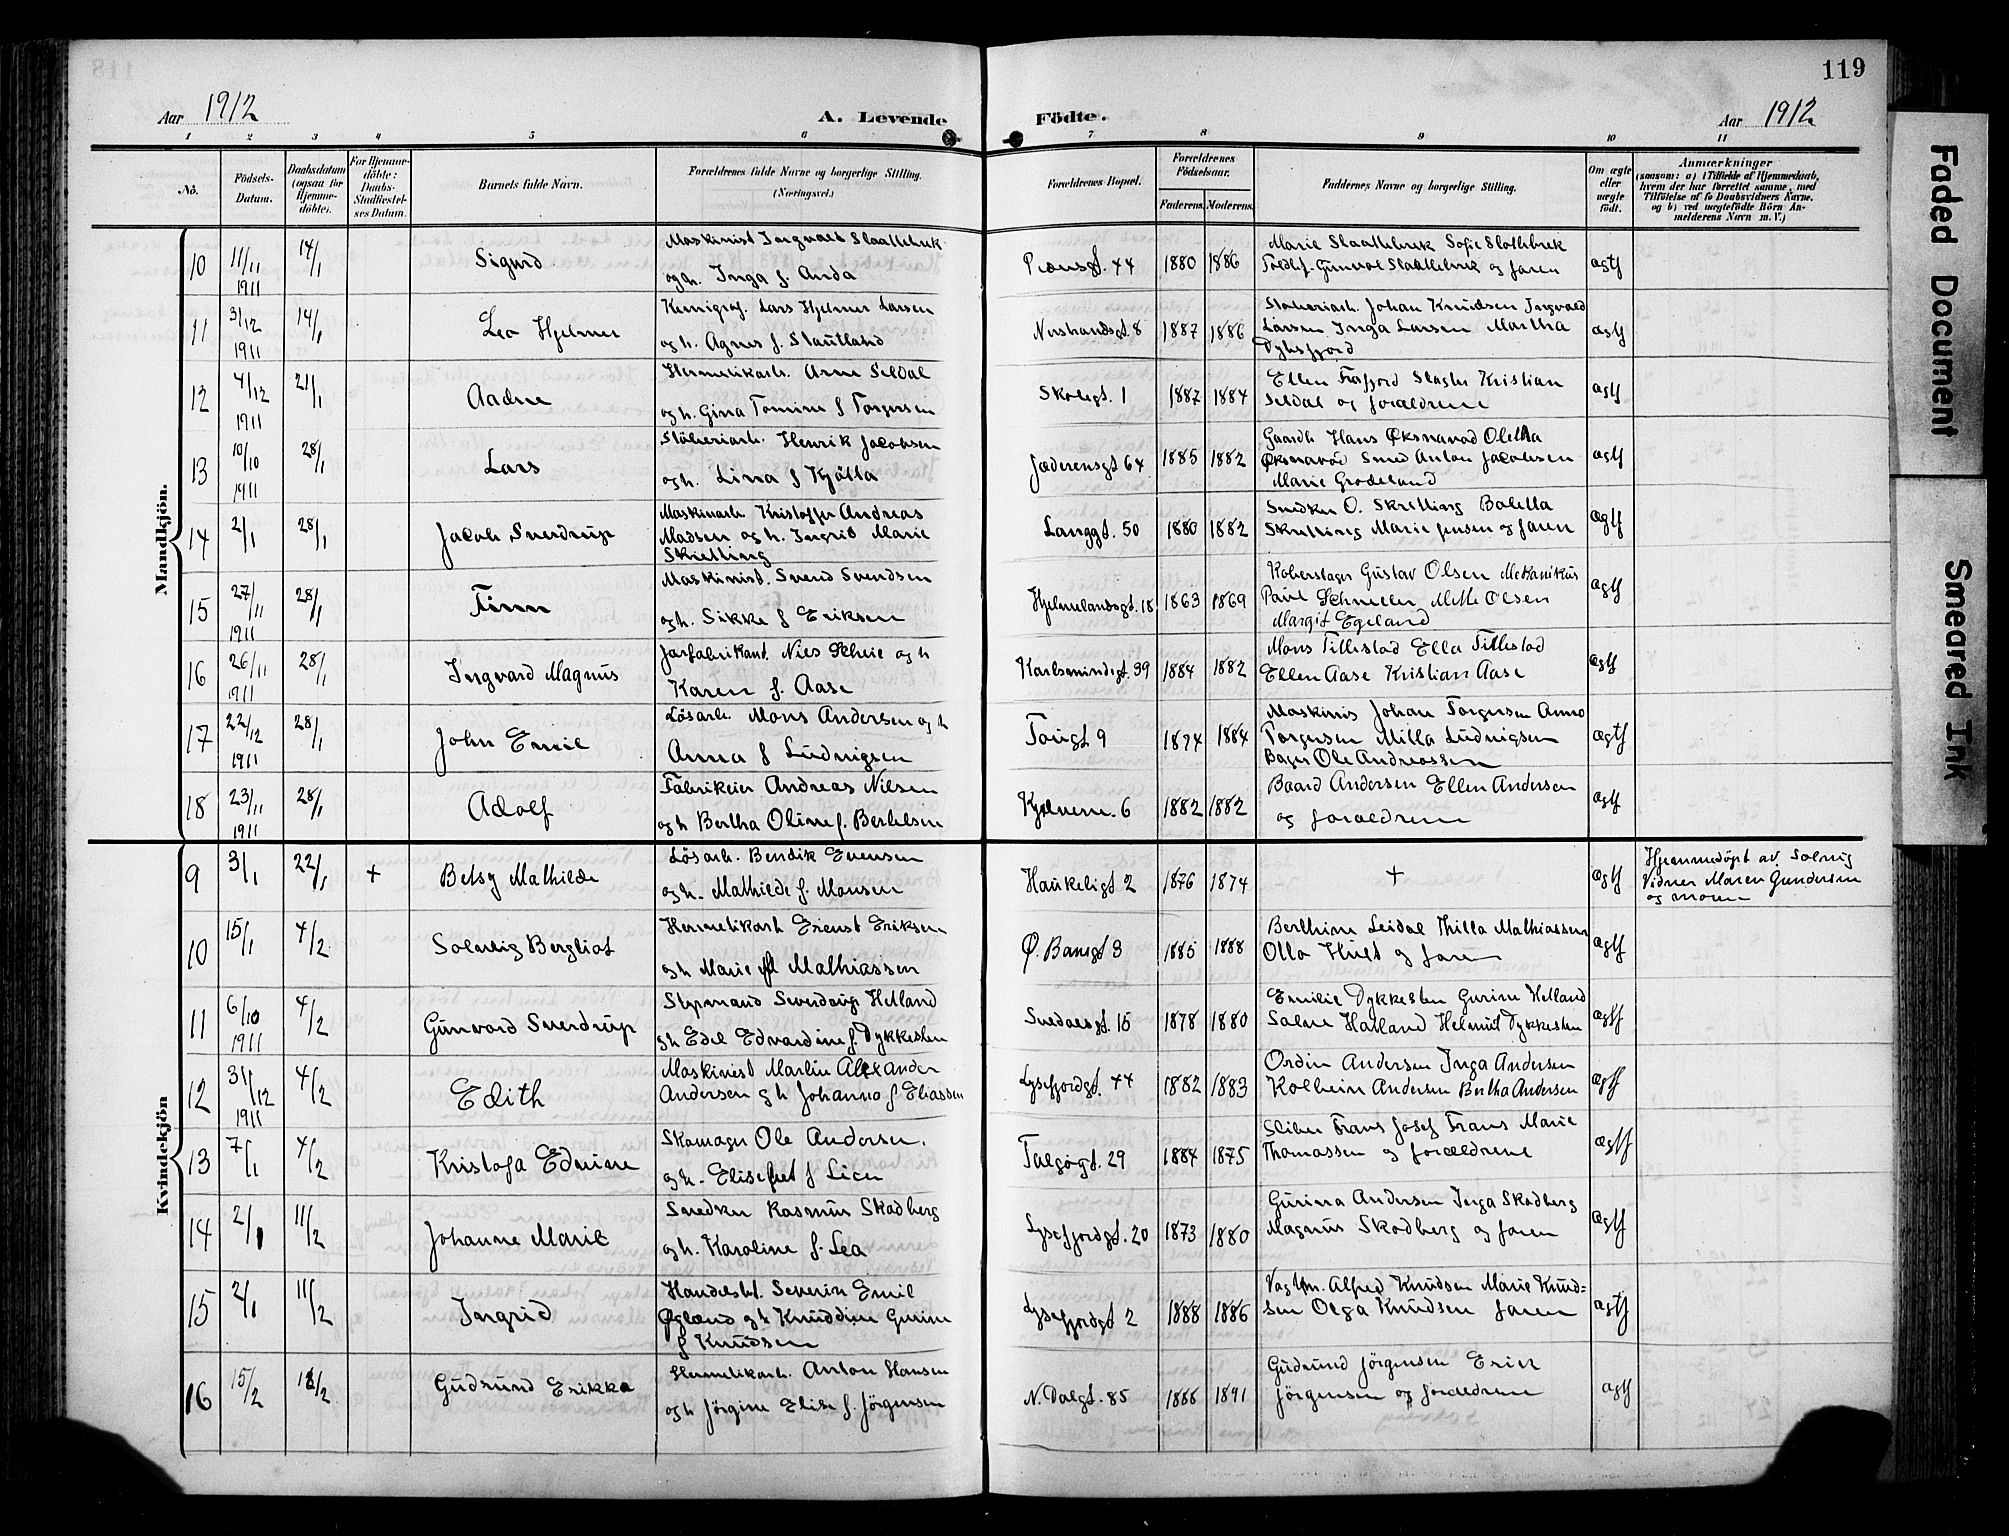 118
119
Aar 1912
A. Levende Födte.
Aar 1912
1 2 3 4 5 6 7 8 9 10 11
No.
Födsels-Datum.
Daabsdatum (ogsaa for Hjemme-döbte).
For Hjemme-döbte: Daabs-Stadfæstel-ses Datum.
Barnets fulde Navn.
Forældrenes fulde Navne og borgerlige Stilling. (Næringsvei.)
Forældrenes Bopæl.
Forældrenes Födselsaar.
Faderens. Moderens.
Faddernes Navne og borgerlige Stilling.
Om ægte eller uægte födt.
Anmærkninger
(saasom: a) i Tilfælde af Hjemmedaab,
hvem der har forrettet samme, med
Tilföielse af to Daabsvidners Navne.
og b) ved uægtefödte Börn An-
melderens Navn m. V.)
Mandkjön.
10 11/11 1911 14/1 Sigurd
Maskinist Ingvald Slaattebrek
og h. Inga f. Anda
44 1880 1886
Marie Slaattebrek Sofie Slattebrek
Gunvor Slaattebrek og faren
ægtf
11 3/12 1911 14/1 Leo Hjelmer
Lars Hjelmer Larsen
og h. Agnes f. Stautland
Nystrandsgt. 8 1887 1886
Johan Knudsen Ingvald
Larsen Inga Larsen Martha
ægtf
12 4/12 1911 21/1 Aadne
Hermetikarb. Arne Seldal
og h. Gina Tomine f Torgersen
Skolegt. 1 1887 1884
Ellen Frafjord Slagter Kristian
Seldal og forældrene
ægtf
13 10/10 1911 28/1 Lars
Stöberiarb. Henrik Jacobsen
og h. Lina f Kjölla
Jæderensgt 64 1885 1882
Gaardb Hans Öksnavad Oletha
Öksnavad Smed Anton Jacobsen
Marie Grødeland
ægtf
14 2/1 28/1 Jacob Sverdrup
Maskinarb Kristoffer Andreas
Madsen og h. Ingrid Marie
Skretting
Langgt. 50 1880 1882
Snedker O. Skretting Boletta
Skretting Marie Jensen og faren
ægtf
15 27/11 1911 28/1 Finn
Maskinist. Svend Svendsen
og h. Sikke f Eriksen
Hjelmelandsgt. 18 1863 1869
Koberslager Gustav Olsen Mekanikus
Paul Schneller Mette Olsen
Margit Egeland
ægtf
16 26/11 1911 28/1 Ingvard Magnus
Nils Scheie og h
Karen f. Aase
Karlsmindegt. 39 1884 1882
Mons Tillestad Ella Tillestad
Ellen Aase Kristian Aase
ægtf
17 22/12 1911 28/1 John Emil
Lösarb. Mons Andersen og h
Anna f Ludvigsen
Tougt 9 1874 1884
Maskinis Johan Torgersen Anna
Torgersen Milla Ludvigsen
Bager Ole Andreassen
ægtf
18 23/11 1911 28/1 Adolf
Fabrikeier Andreas Nilsen
og h Bertha Oline f. Bertelsen
Kjelvene. 6 1882 1882
Baard Andersen Ellen Andersen
og forældrene
ægtf
Kvindekjön
9 3/1 22/1 + Betsy Mathilde
Lösarb. Bendik Evensen
og h. Mathilde f. Monsen
Haukeligt 2 1876 1874
+
ægtf
Hjemmedöpt av Solveig
Vidner Maren Gundersen
og moren
10 15/1 4/2 Solveig Bergliot
Hermetikarb Erenst Eriksen
og h Marie f Mathiassen
Ø. Banegt 3 1885 1888
Berthine Leidal Thilla Mathiassen
Olla Hult og faren
ægtf
11 6/10 1911 4/2 Gunvord Sverdrup
Styrmand Sverdrup Helland
og h Edel Edvardine f. Dykkesten
Suldalsgt. 15 1878 1880
Emilie Dykkesten Gurine Helland
Salne Hatland Helmut Dykkesten
ægtf
12 31/12 1911 4/2 Edith
Maskinist Martin Alexander
Andersen og h Johanna f Eliassen
Lysefjordgt. 44 1882 1883
Ordin Andersen Inga Andersen
Kolbein Andersen Bertha Andersen
ægtf
13 7/1 4/2 Kristofa Edvine
Skomager Ole Andersen.
og h. Elisebet f Lien
Talgøgt. 29 1884 1875
Sliber Frans Josef Frans Marie
Thomassen og forældrene
ægtf
14 2/1 11/2 Johanne Marie
Snedker Rasmus Skadberg
og h. Karoline f. Lea
Lysefjordgt. 20 1873 1880
Gurina Andersen Inga Skadberg
Magnus Skadberg og faren
ægtf
15 2/1 11/2 Ingrid
Handelsb. Severin Emil
Øgland og h Knuddine Gurine
f Knudsen
Lysefjordgt 2 1888 1886
Alfred Knudsen Marie Knud-
sen Olga Knudsen faren
ægtf
16 15/2 18/2 Gudrund Erikka
Hermetikarb. Anton Hansen
og h Jörgine Elise f. Jörgensen
N. Dalgt. 85 1888 1891
Gudrund Jörgensen Erick
Jörgensen og forældrene
ægtf
Faded Document
Smeared Ink